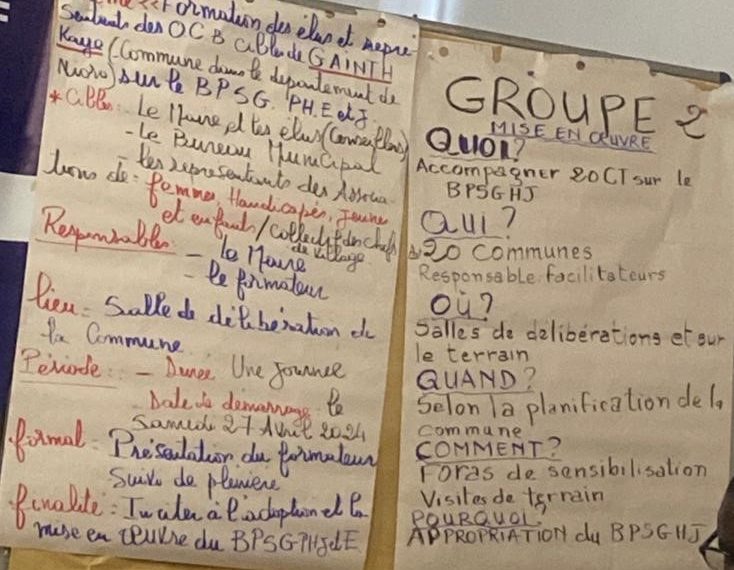 Formation des élus et repré
sentants des OCB cible de GAINTH
Kaye (Commune dans le département de
Nioro) sur le BPSG. PH.E et J.
*Cibles: Le Maire et les élus (Conseillers)
- Le Bureau Municipal
- les representants des Associa
tions de: femmes, Handicapés, Jeunes
et enfants / Collectif des chefs
de village
Responsables - le Maire
- le formateur
Lieu - Salle de déliberation de
la Commune
Période: - Duree Une Journee
- Date de demarrage le
Samedi 27 Avril 2024
format - Présentation du formateur
Suivi de pleniere
finalité: Inciter à l'adoption et la
mise en œuvre du BPSG-PHJetE
GROUPE 2
MISE EN ŒUVRE
QUOI?
Accompagner 20 CT sur le
BPSGHJ
QUI?
20 Communes
Responsable facilitateurs
OÙ?
Salles de délibérations et sur
le terrain
QUAND?
Selon la planification de la
Commune
COMMENT?
Foras de sensibilisation
Visites de terrain
POURQUOI:
APPROPRIATION du BPSGHJ